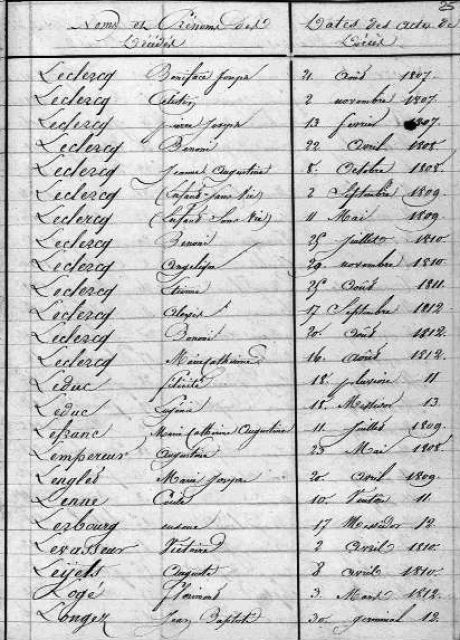 25
Noms et Prénoms des Dates des actes de
Décédés Décès
Leclercq Boniface Joseph 21 Août 1807.
Leclercq Célestin 2 novembre 1807.
Leclercq Pierre Joseph 13 février 1807.
Leclercq Benoni 22 Avril 1808.
Leclercq Jeanne Augustine 8. Octobre 1808.
Leclercq (Enfant Sans Vie) 2 Septembre 1809
Leclercq (Enfant Sans Vie) 11 Mai 1809.
Leclercq Benoni 25 juillet 1810.
Leclercq Angélique 29. novembre 1810.
Leclercq Etienne 25 Août 1811.
Leclercq Alexis 17 Septembre 1812
Leclercq Benoni 20. Août 1812.
Leclercq Marie Catherine 16. Août 1812.
Leduc félicité 18. pluviose 11
Leduc Eugénie 18. Messidor 13.
Lefranc Marie Catherine Augustine 11 juillet 1809.
Lempereur Augustine 23 Mai 1808.
Lenglés Marie Joseph 20. Avril 1809
Lenne 10. Ventose 11.
Lesbourg 17 Messidor 12.
Levasseur Victoire 2 avril 1810.
Leijels Auguste 8 avril 1810.
Logé Florimond 3. Mars 1812.
Longez Jean Baptiste 30. germinal 12.